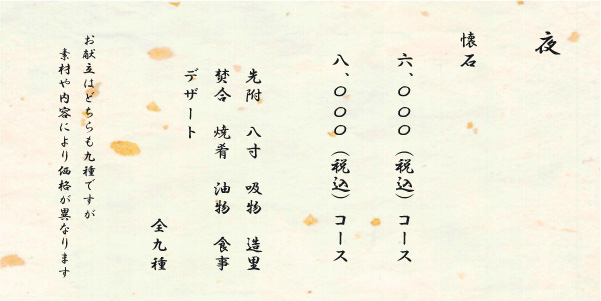 夜
懐石
六、〇〇〇(税込)コース
八、〇〇〇(税込)コース
先附 八寸 吸物 造里
焚合 焼肴 油物 食事
デザート
全九種
お献立はどちらも九種ですが
素材や内容により価格が異なります